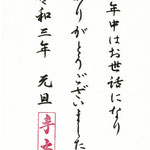 年中はお世話になり
りがとうございました
令和三年 元旦